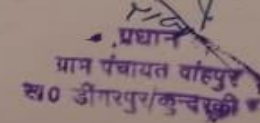 प्रधान
ग्राम पंचायत वांहपुर
ख0 डींगरपुर/कुन्दरकी